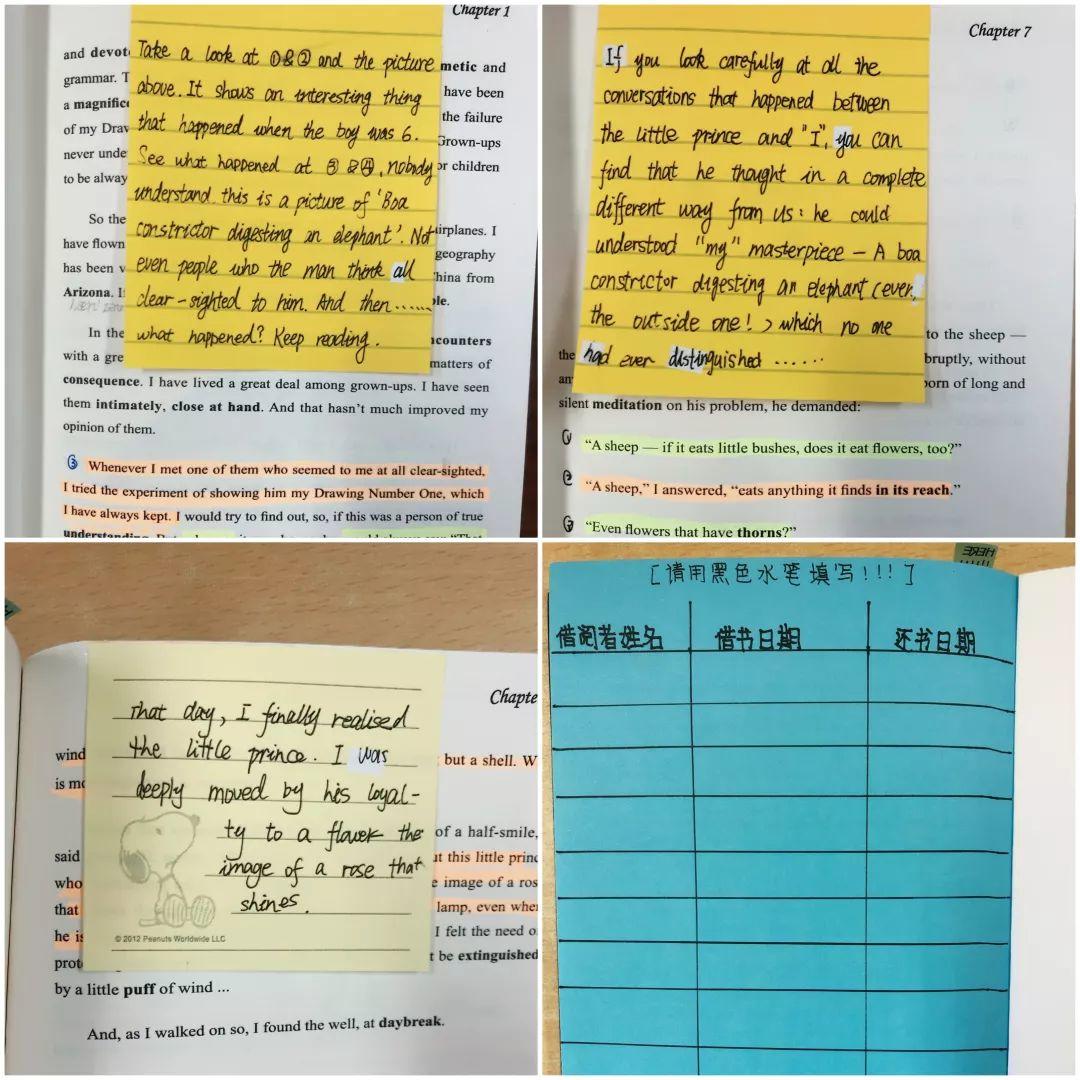 Chapter 1
Take a look at ①&② and the picture
above. It shows an interesting thing
that happened when the boy was 6.
See what happened at ③&④, nobody
understand this is a picture of 'Boa
constrictor digesting an elephant'. Not
even people who the man think all
clear-sighted to him. And then ......
what happened? Keep reading.
and devot
metic and
grammar. T
have been
a magnific
the failure
of my Draw
Grown-ups
never unde
or children
to be alway
So the
airplanes. I
have flown
geography
has been v
China from
Arizona. I
ple.
In the
ncounters
with a gre
matters of
consequence. I have lived a great deal among grown-ups. I have seen
them intimately, close at hand. And that hasn't much improved my
opinion of them.
③ Whenever I met one of them who seemed to me at all clear-sighted,
I tried the experiment of showing him my Drawing Number One, which
I have always kept. I would try to find out, so, if this was a person of true
understanding.
Chapter 7
If you look carefully at all the
conversations that happened between
the little prince and "I", you can
find that he thought in a complete
different way from us: he could
understood "my" masterpiece — A boa
constrictor digesting an elephant (even
the outside one!), which no one
had ever distinguished ......
to the sheep —
the
bruptly, without
an
born of long and
silent meditation on his problem, he demanded:
① "A sheep — if it eats little bushes, does it eat flowers, too?"
② "A sheep," I answered, "eats anything it finds in its reach."
③ "Even flowers that have thorns?"
Chapte
That day, I finally realised
the little prince. I was
deeply moved by his loyal-
ty to a flower the
image of a rose that
shines.
© 2012 Peanuts Worldwide LLC
wind
but a shell. W
is mo
of a half-smile,
said
ut this little princ
who
e image of a ros
that
lamp, even whe
he is
I felt the need o
prot
t be extinguished
by a little puff of wind ...
And, as I walked on so, I found the well, at daybreak.
HERE
[请用黑色水笔填写!!!]
借阅者姓名 借书日期 还书日期